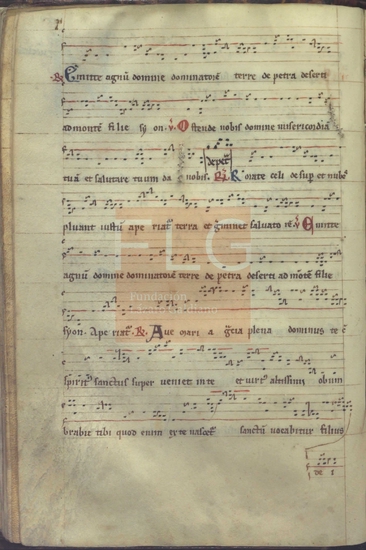 ℟ Emitte agnum domine dominatorē terre de petra deserti
ad montē filie syon. ℣. Ostende nobis domine misericordiā
tuā et salutare tuum da nobis. De pet̄ ℟. Rorate celi desup et nubes
pluant iustū aperiat̄ terra et germinet saluatorē ℣ Emitte
agnū domine dominatorē terre de petra deserti ad mōtē filie
syon. Aperiat̄. ℟. Aue maria gr̄cia plena dominus tecū
spirit᷒ sanctus super ueniet in te et uirt᷒ altissimi obum
brabit tibi quod enim ex te nascet̄ sanctū uocabitur filius
de i
FLG
Fundación
Lázaro Galdiano